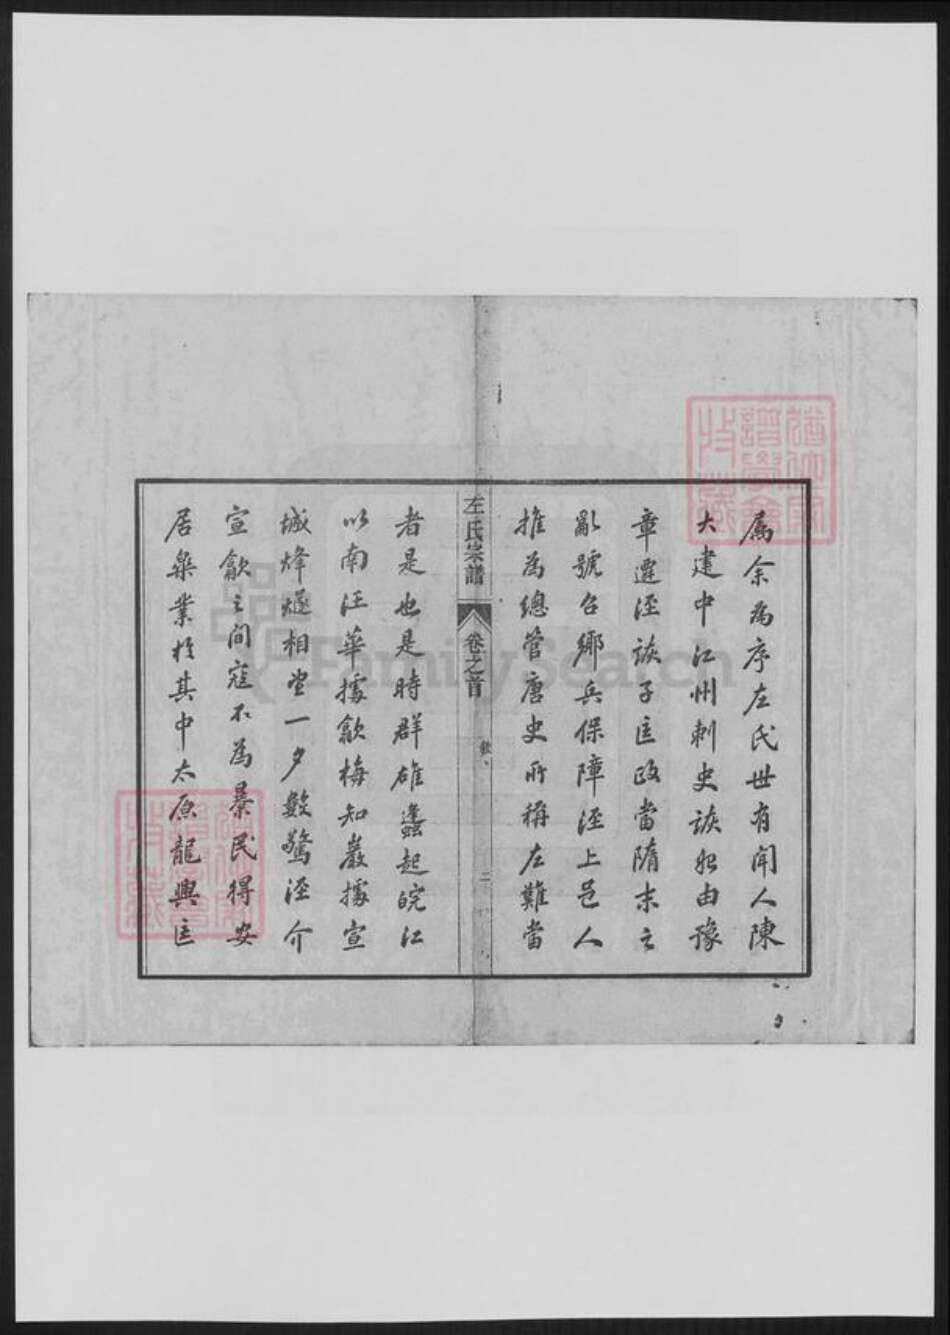 屬余為序左氏世有聞人陳
大建中江州刺史詼始由豫
章遷涇詼子匡政當隋末之
亂號召鄉兵保障涇上邑人
推為總管唐史所稱左難當
左氏宗譜
卷之首
敘
二
者是也是時群雄蠭起皖江
以南汪華據歙梅知巖據宣
城烽燧相望一夕數驚涇介
宣歙之間寇不為暴民得安
居樂業於其中太原龍興匡
FamilySearch